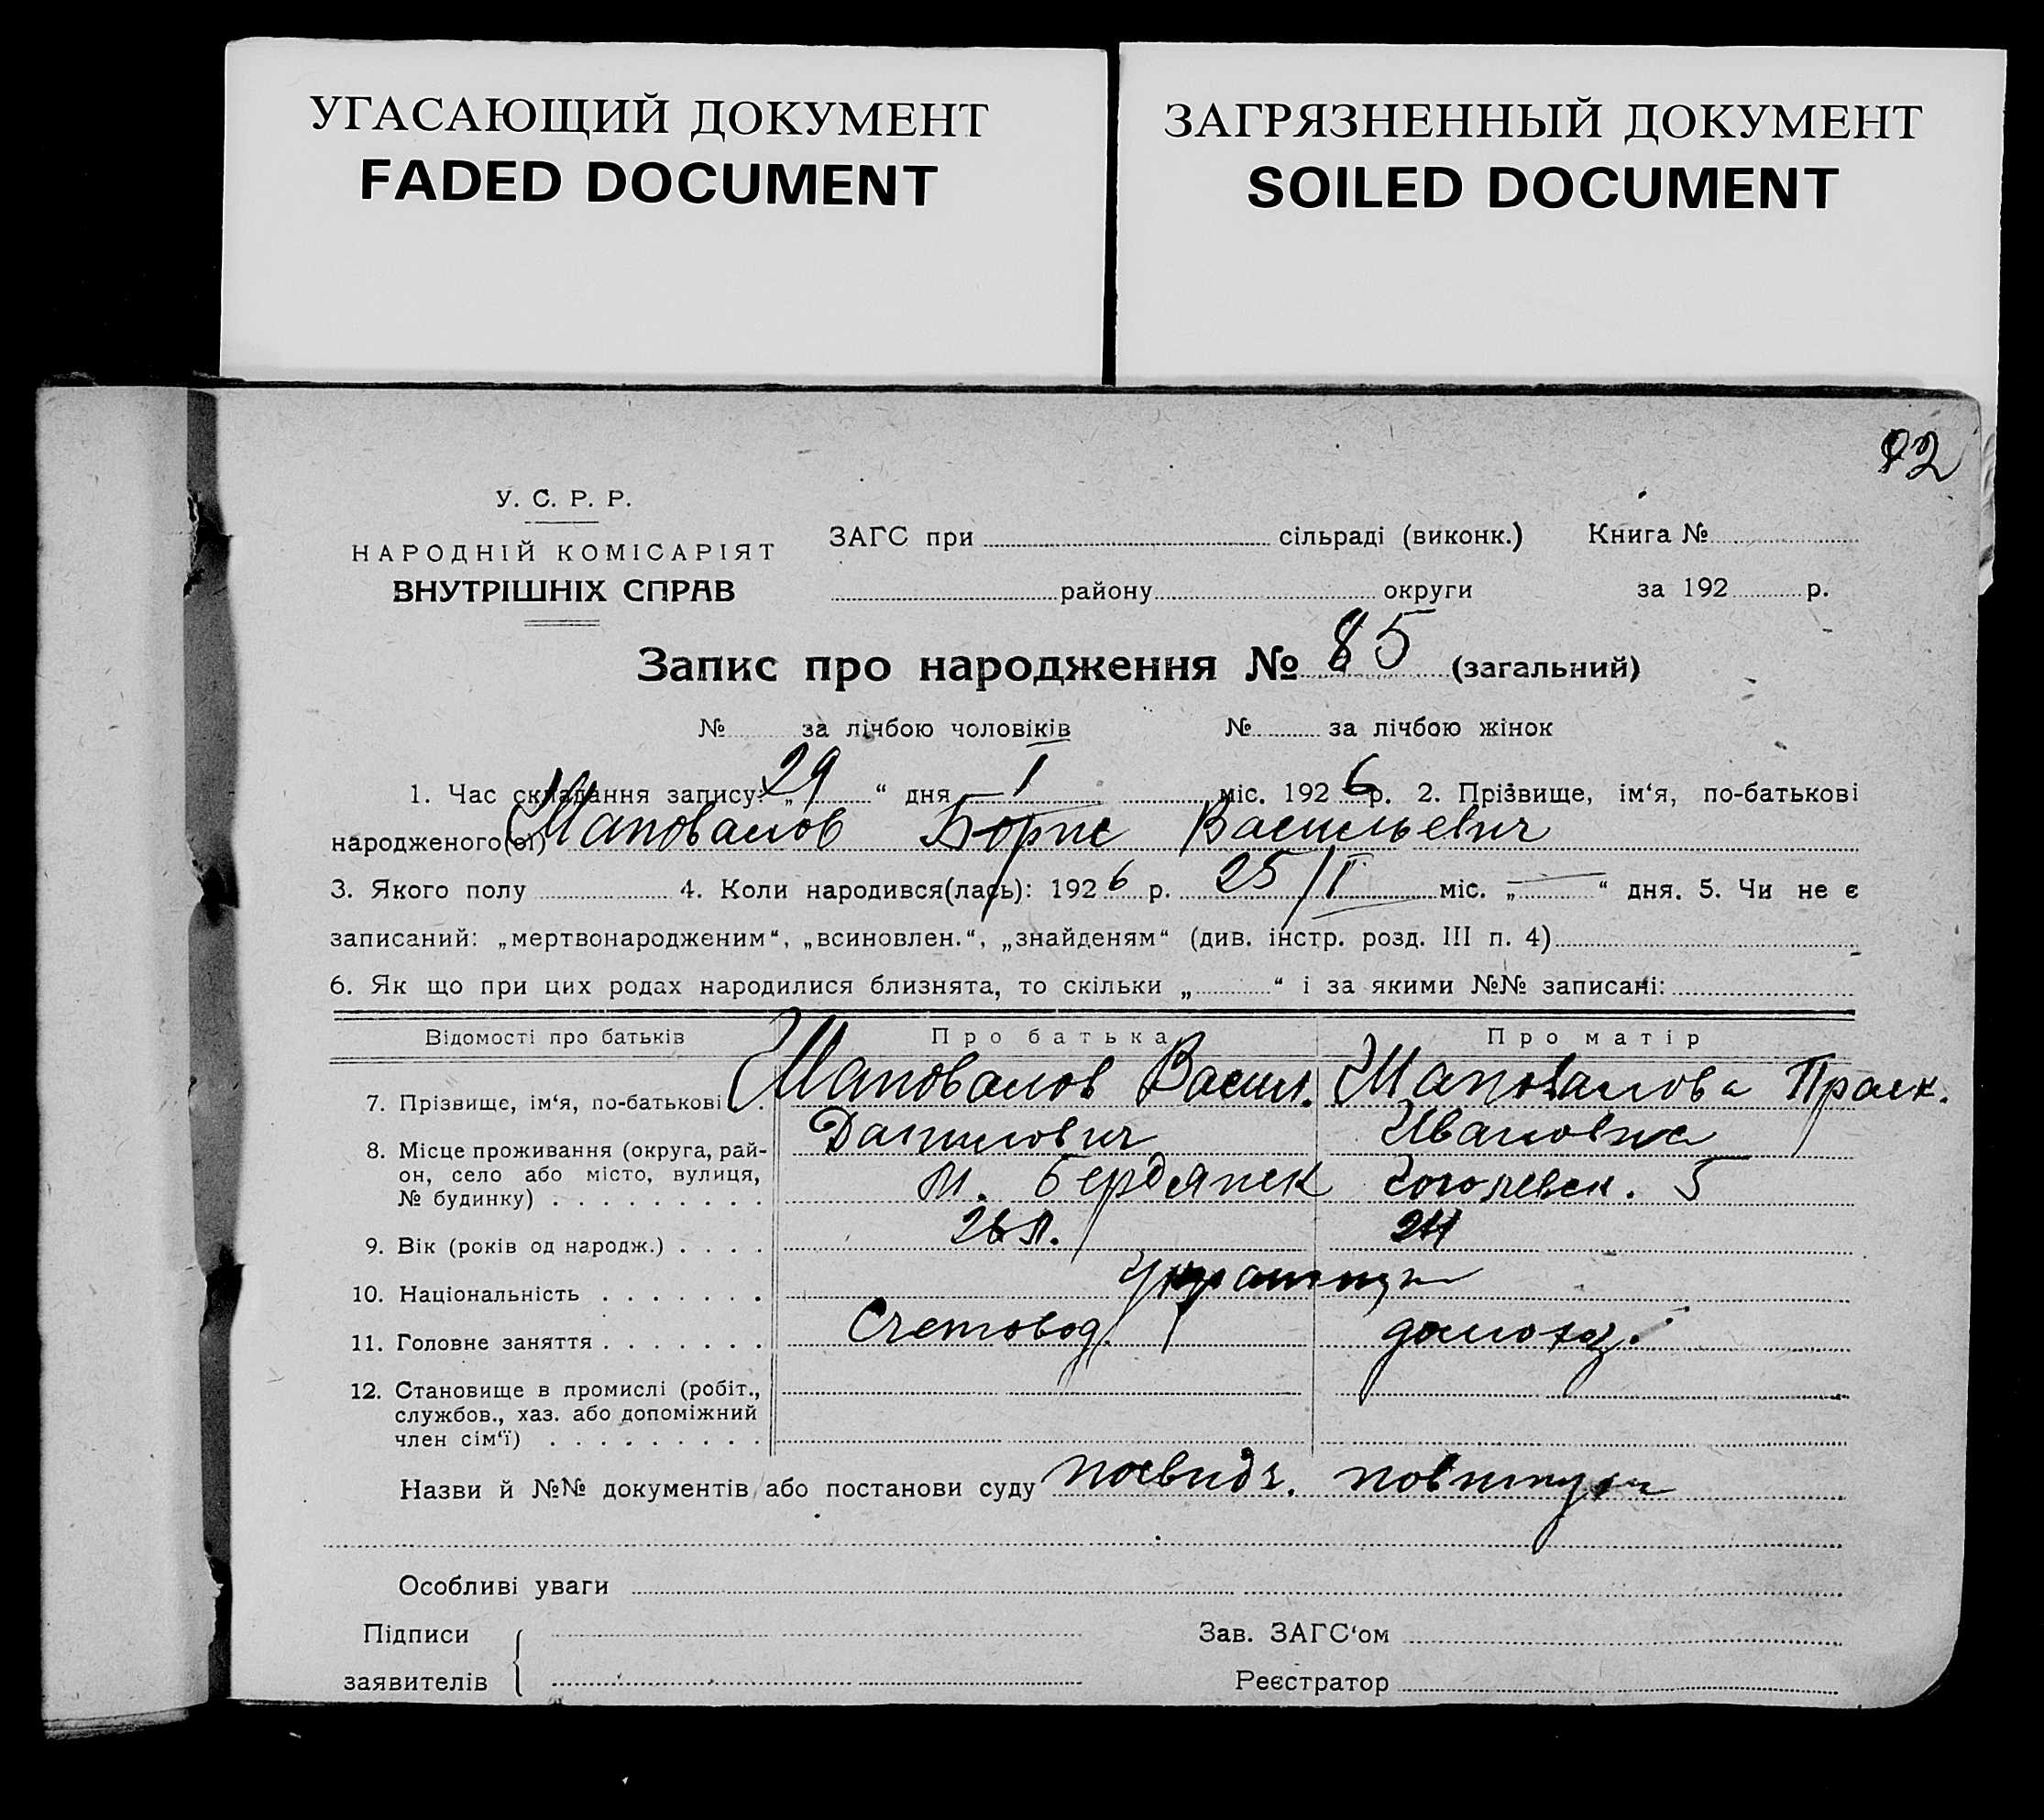 УГАСАЮЩИЙ ДОКУМЕНТ
FADED DOCUMENT
ЗАГРЯЗНЕННЫЙ ДОКУМЕНТ
SOILED DOCUMENT
У. С. Р. Р.
НАРОДНІЙ КОМІСАРІЯТ
ВНУТРІШНІХ СПРАВ
ЗАГС при сільраді (виконк.) Книга №
району округи за 192 р.
Запис про народження № 85 (загальний)
№ за лічбою чоловіків № за лічбою жінок
1. Час складання запису: „29“ дня I міс. 1926 р. 2. Прізвище, ім‘я, по-батькові
народженого(ої) Шаповалов Борис Васильевич
3. Якого полу 4. Коли народився(лась): 1926 р. 25/I міс. „—“ дня. 5. Чи не є
записаний: „мертвонародженим“, „всиновлен.“, „знайденям“ (див. інстр. розд. III п. 4)
6. Як що при цих родах народилися близнята, то скільки „ “ і за якими №№ записані:
Відомості про батьків Про батька Про матір
7. Прізвище, ім‘я, по-батькові Шаповалов Васил. Шаповалова Праск.
Данилович Ивановна
8. Місце проживання (округа, рай-
он, село або місто, вулиця,
№ будинку) М. Бердянск Гоголевск. 5
9. Вік (років од народж.) 26 л.
10. Національність
11. Головне заняття Счетовод. домохаз.
12. Становище в промислі (робіт.,
службов., хаз. або допоміжний
член сім‘ї)
Назви й №№ документів або постанови суду посвидч. повитухи
Особливі уваги
Підписи
заявителів
Зав. ЗАГС‘ом
Реєстратор